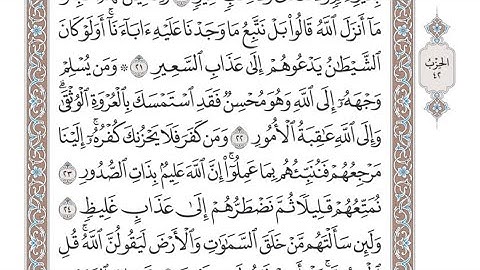 مَآ أَنزَلَ ٱللَّهُ قَالُوا۟ بَلْ نَتَّبِعُ مَا وَجَدْنَا عَلَيْهِ ءَابَآءَنَآ ۚ أَوَلَوْ كَانَ
ٱلشَّيْطَٰنُ يَدْعُوهُمْ إِلَىٰ عَذَابِ ٱلسَّعِيرِ ٢١ ۞ وَمَن يُسْلِمْ
وَجْهَهُۥٓ إِلَى ٱللَّهِ وَهُوَ مُحْسِنٌ فَقَدِ ٱسْتَمْسَكَ بِٱلْعُرْوَةِ ٱلْوُثْقَىٰ ۗ
وَإِلَى ٱللَّهِ عَٰقِبَةُ ٱلْأُمُورِ ٢٢ وَمَن كَفَرَ فَلَا يَحْزُنكَ كُفْرُهُۥٓ ۚ إِلَيْنَا
مَرْجِعُهُمْ فَنُنَبِّئُهُم بِمَا عَمِلُوٓا۟ ۚ إِنَّ ٱللَّهَ عَلِيمٌۢ بِذَاتِ ٱلصُّدُورِ ٢٣
نُمَتِّعُهُمْ قَلِيلًا ثُمَّ نَضْطَرُّهُمْ إِلَىٰ عَذَابٍ غَلِيظٍ ٢٤
وَلَئِن سَأَلْتَهُم مَّنْ خَلَقَ ٱلسَّمَٰوَٰتِ وَٱلْأَرْضَ لَيَقُولُنَّ ٱللَّهُ ۚ قُلِ
الحزب
٤٢